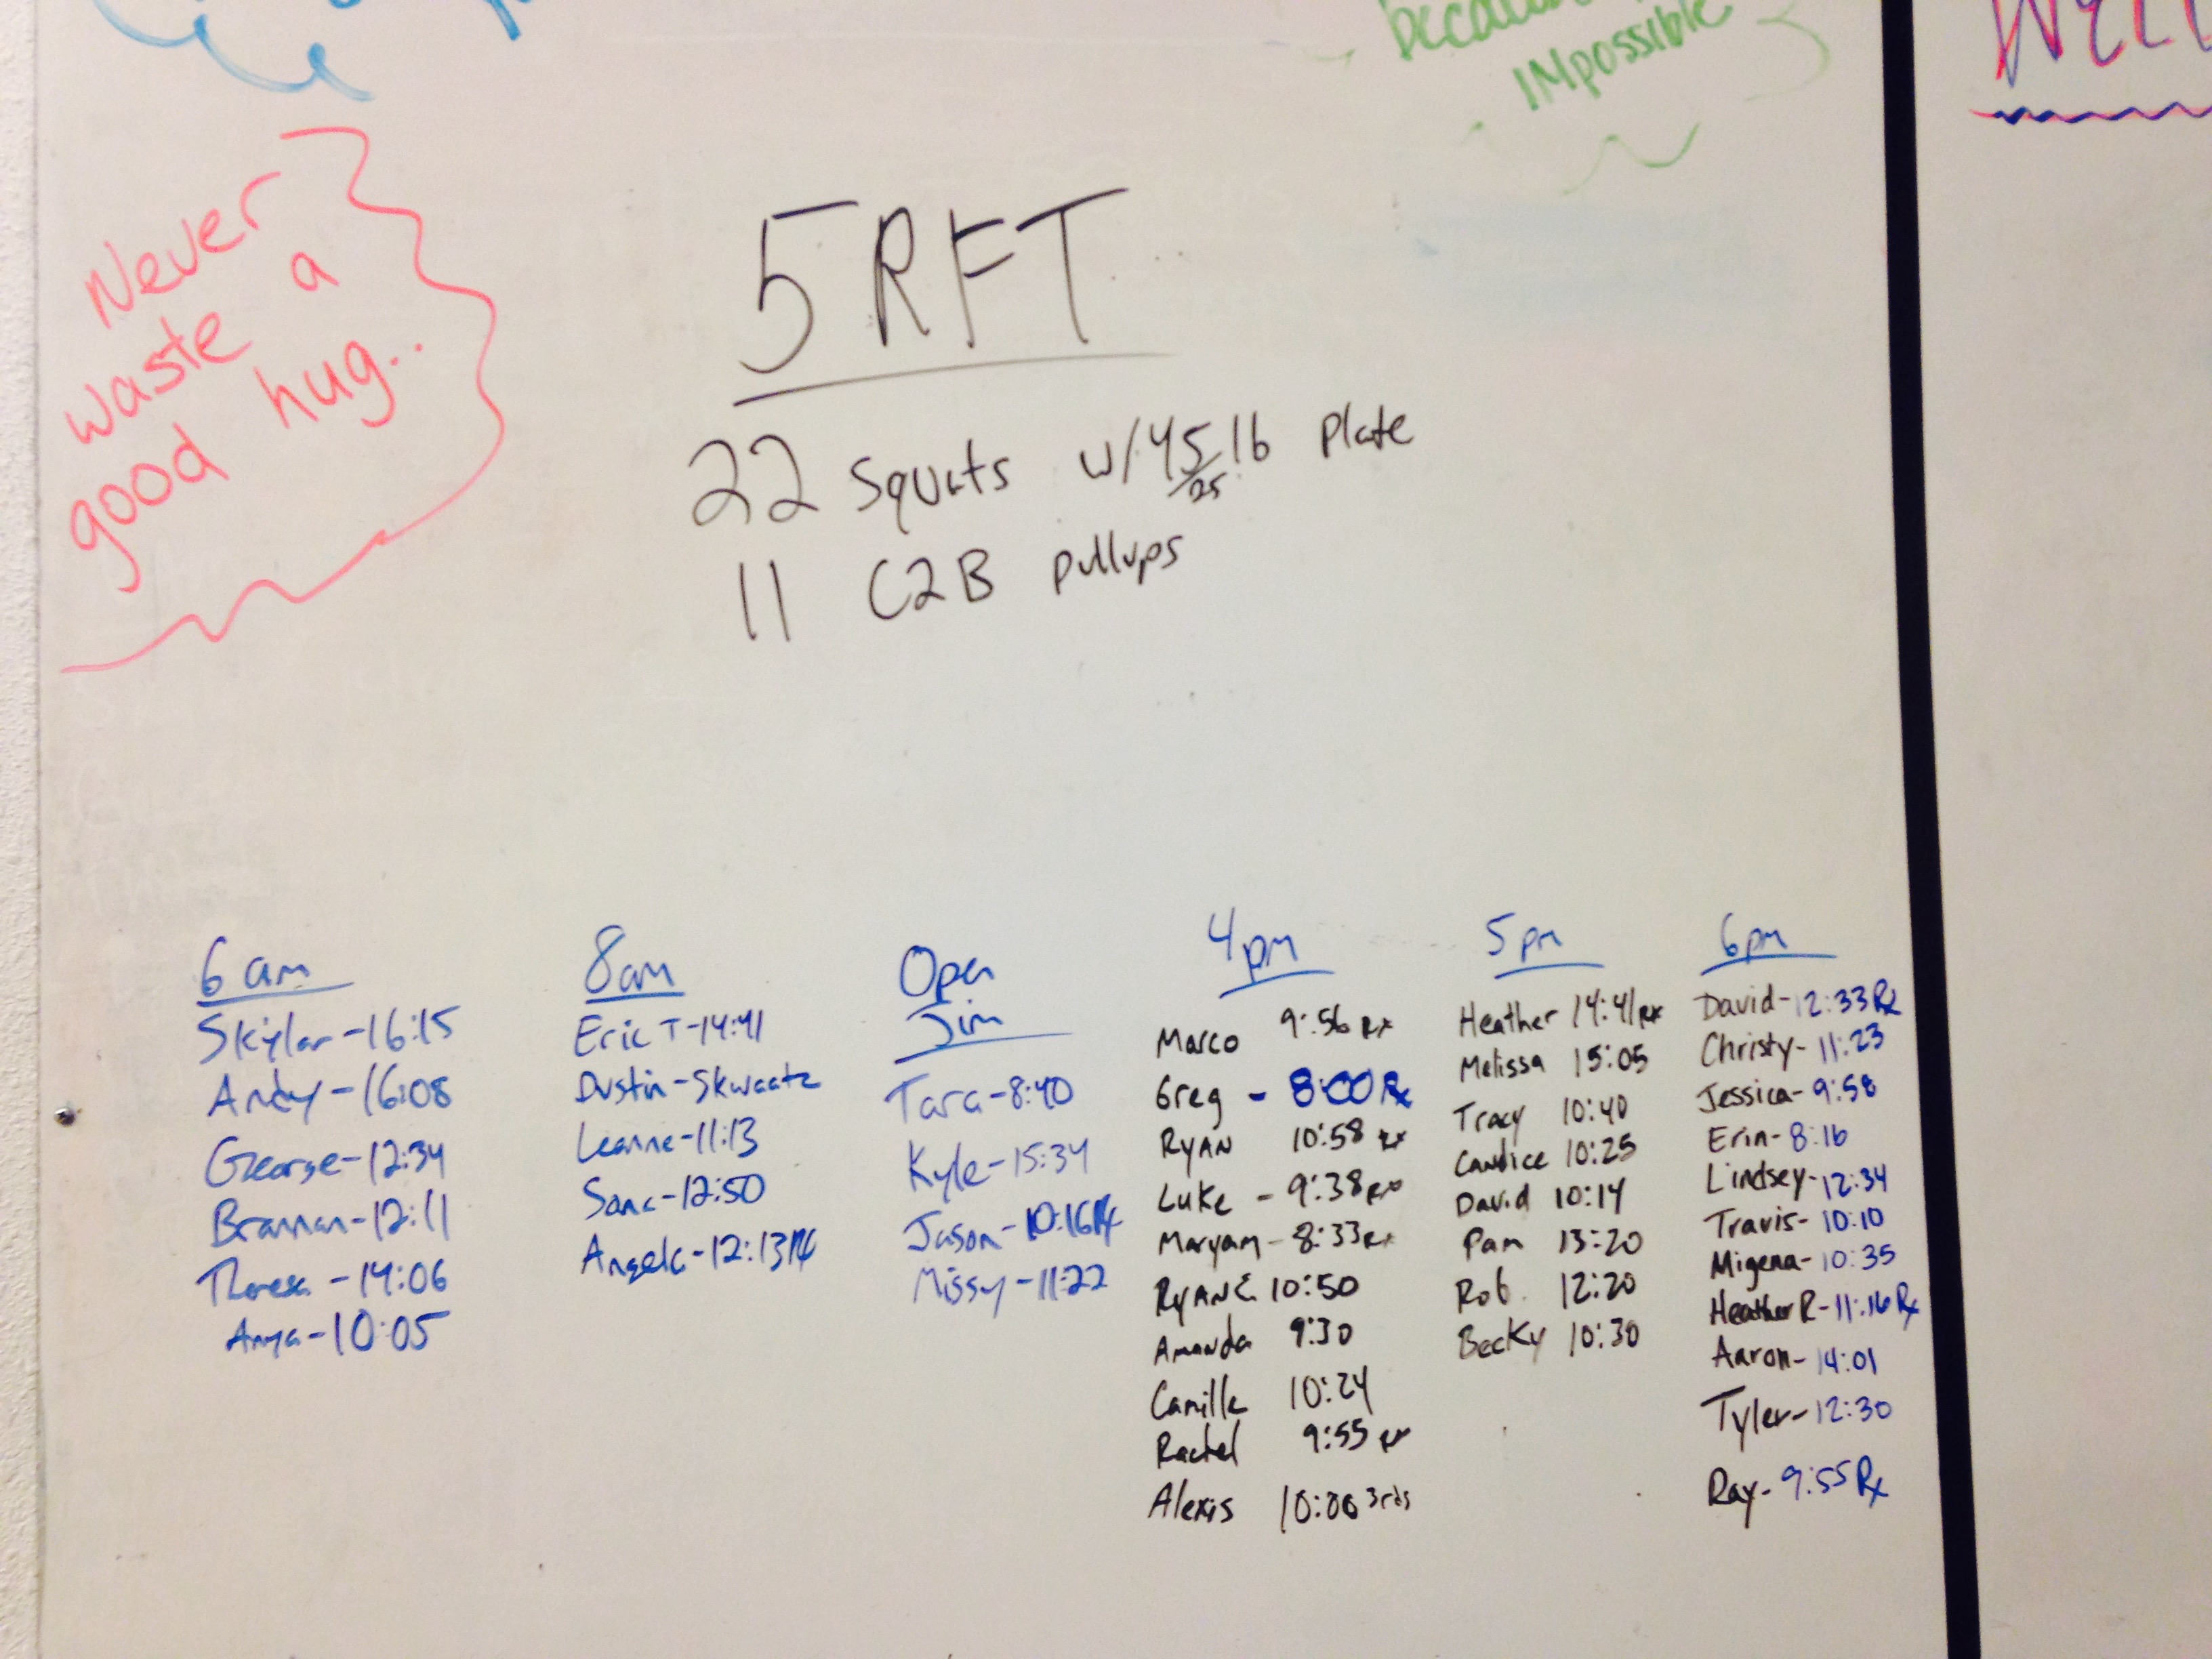 IMpossible
Never
waste a
good hug..
5 RFT
22 Squats w/ 45/25 lb Plate
11 C2B pullups
6 am
Skylar - 16:15
Andy - 16:08
George - 12:34
Brannan - 12:11
- 14:06
Anya - 10:05
8am
Eric T - 14:41
Dustin - Skwaatz
Leanne - 11:13
Sana - 12:50
Angela - 12:13 Rx
Open
Jim
Tara - 8:40
Kyle - 15:34
Jason - 10:16 Rx
Missy - 11:22
4pm
Marco 9:56 Rx
Greg - 8:00 Rx
RYAN 10:58 Rx
Luke - 9:38 Rx
Maryam - 8:33 Rx
RYAN E. 10:50
Amanda 9:30
Camille 10:24
Rachel 9:55 Rx
Alexis 10:00 3rds
5pm
Heather 14:41 Rx
Melissa 15:05
Tracy 10:40
Candice 10:25
David 10:14
Pam 13:20
Rob 12:20
Becky 10:30
6pm
David - 12:33 Rx
Christy - 11:23
Jessica - 9:58
Erin - 8:16
Lindsey - 12:34
Travis - 10:10
Migena - 10:35
Heather R - 11:16 Rx
Aaron - 14:01
Tyler - 12:30
Ray - 9:55 Rx